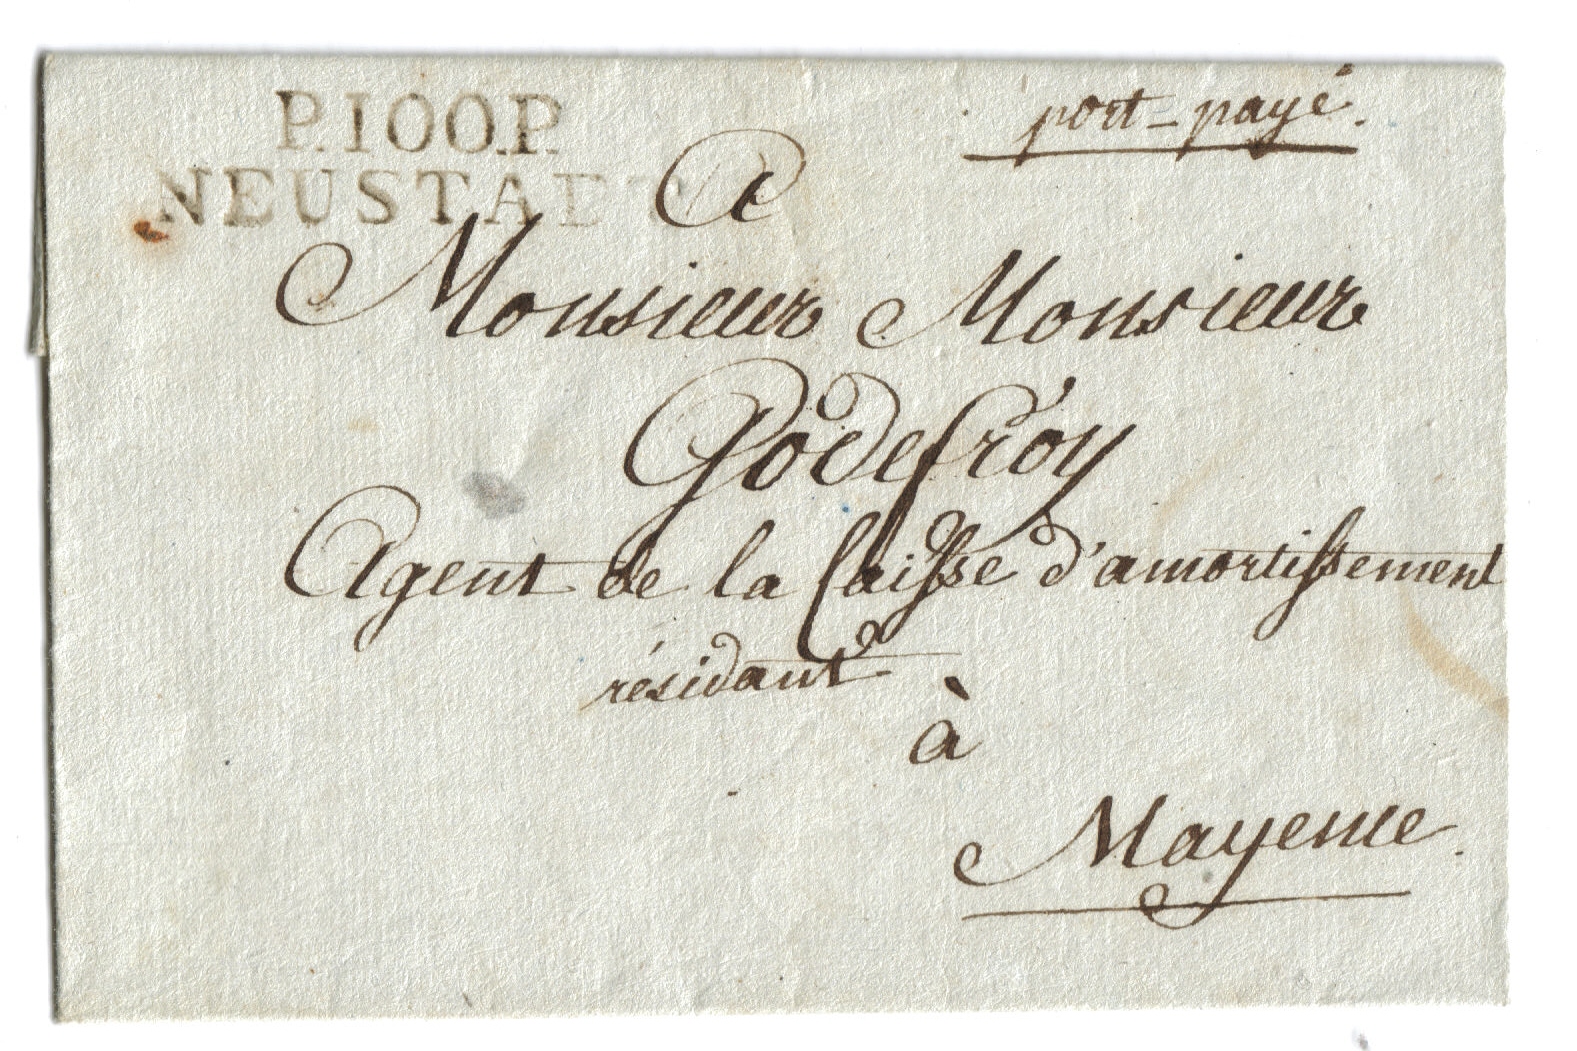 P.100.P.
NEUSTADT
port-payé.
A
Monsieur Monsieur
Godefroy
Agent de la Caisse d'amortissement
résidant
à
Mayence.